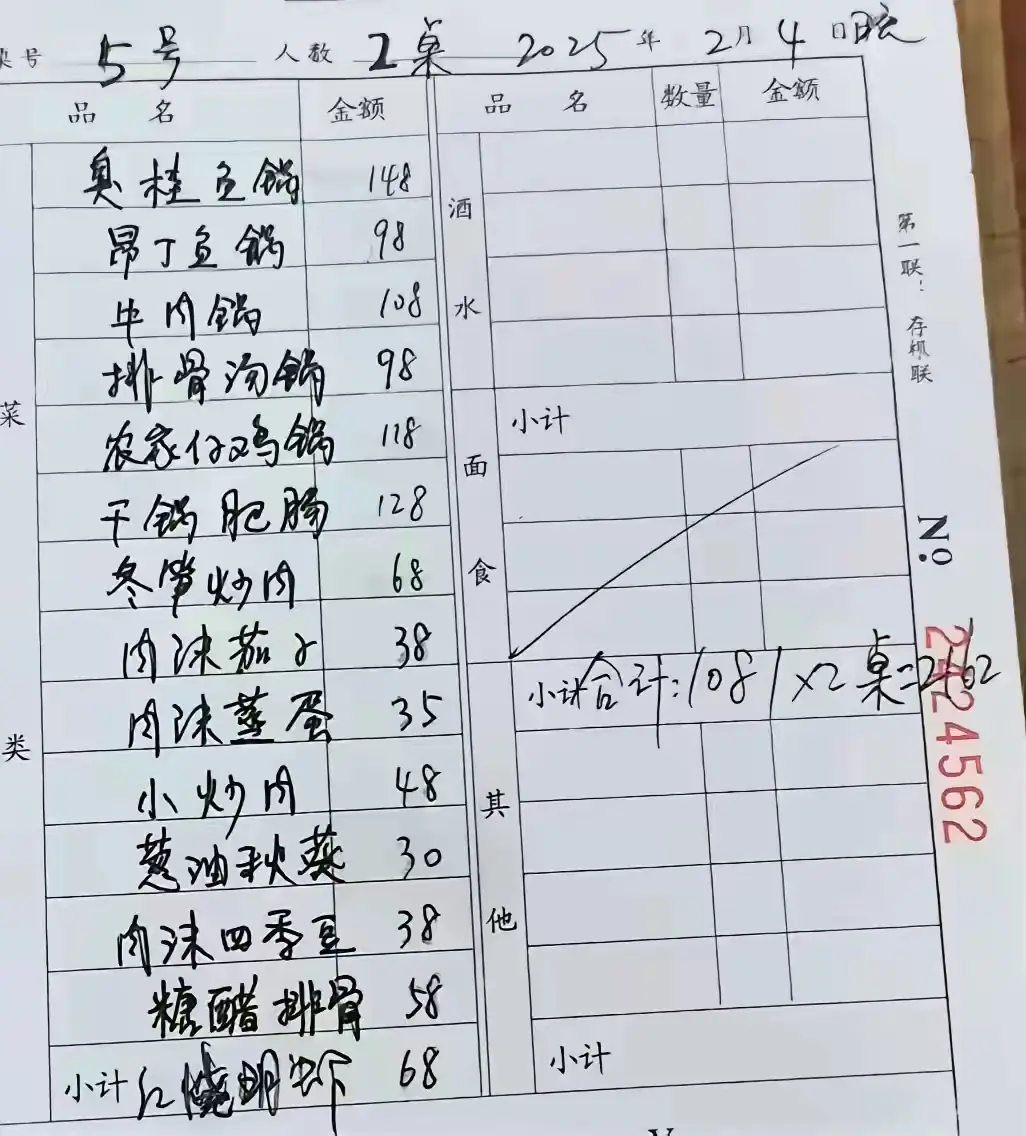 桌号 5号 人数 2桌 2025年2月4日晚
品名 金额 品名 数量 金额
菜类
臭桂鱼锅 148
昂丁鱼锅 98
牛肉锅 108
排骨汤锅 98
农家仔鸡锅 118
干锅肥肠 128
冬笋炒肉 68
肉沫茄子 38
肉沫蒸蛋 35
小炒肉 48
葱油秋葵 30
肉沫四季豆 38
糖醋排骨 58
小计 红烧明虾 68
酒水
小计
面食
小计 合计:1081×2桌=2162
其他
小计
第一联:存根联
№ 2424562